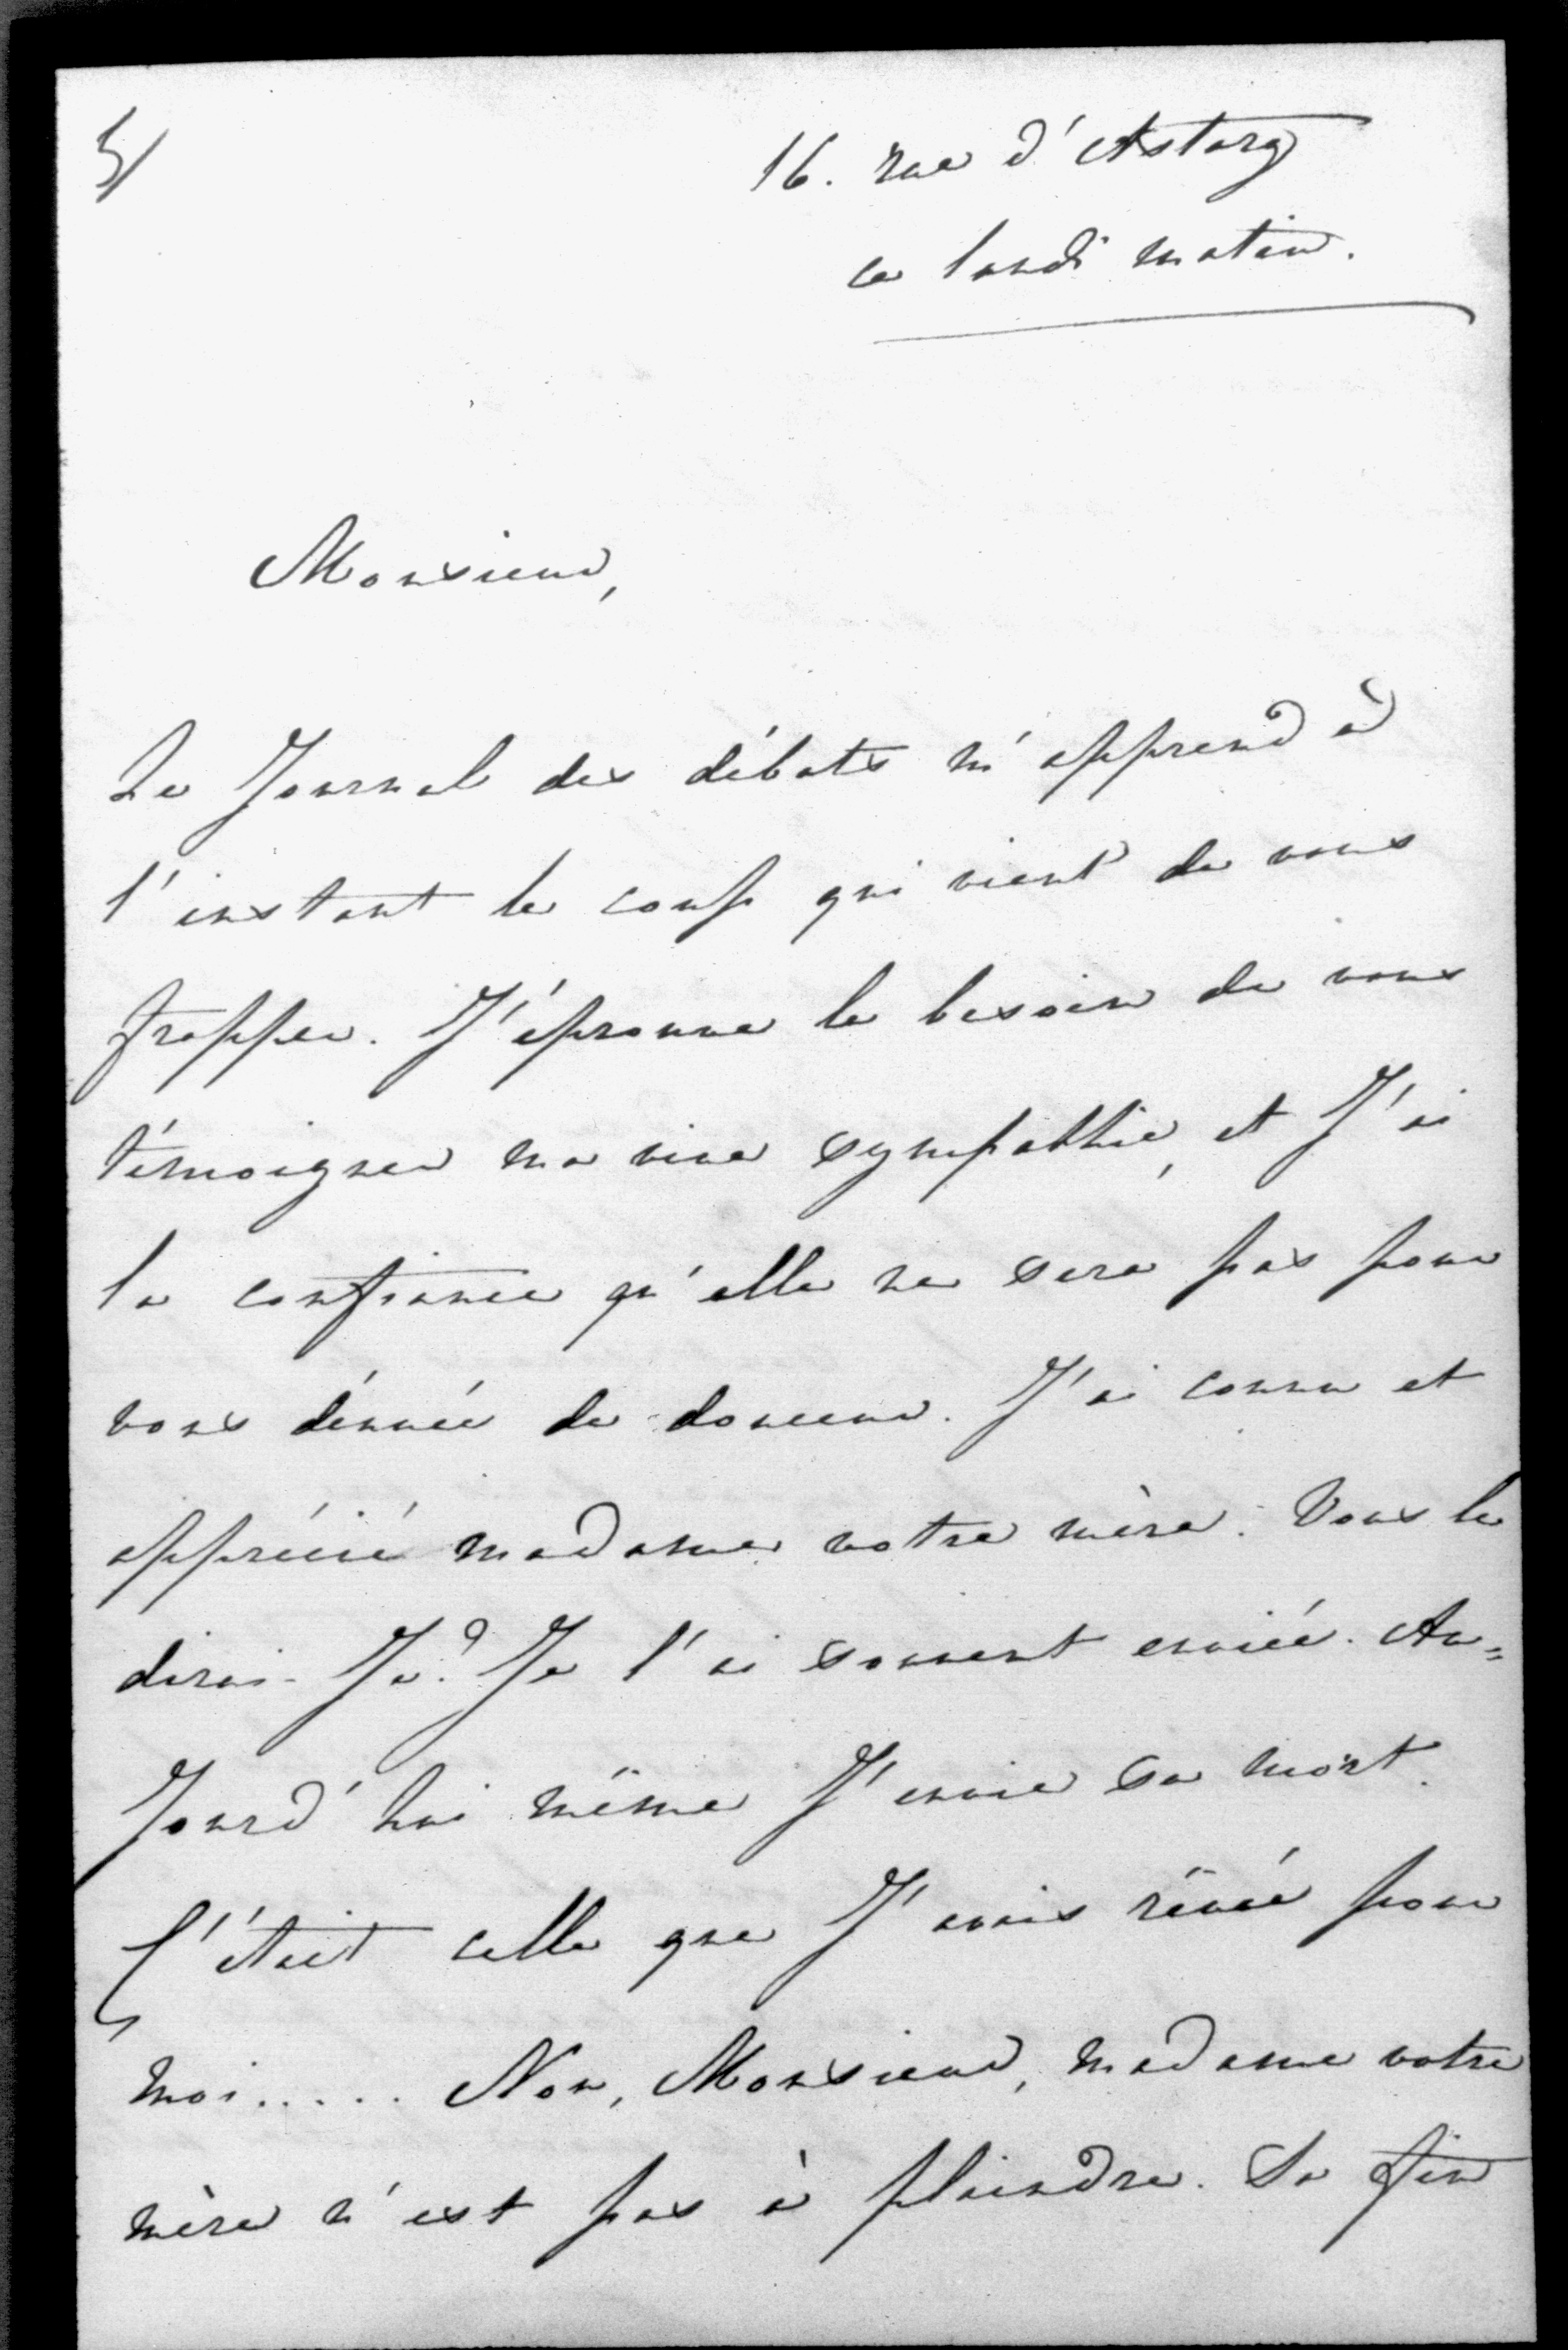 5/
16. rue d'Astorg
ce lundi matin.
Monsieur,
Le Journal des débats m'apprend à
l'instant le coup qui vient de vous
frapper. J'éprouve le besoin de vous
témoigner ma vive sympathie, et J'ai
la confiance qu'elle ne sera pas pour
vous dénuée de douceur. J'ai connu et
apprécié madame votre mère. Vous le
dirai-Je? Je l'ai souvent enviée. Au=
Jourd'hui même J'envie sa mort.
C'était celle que J'avais rêvée pour
moi..... Non, Monsieur, madame votre
mère n'est pas à plaindre. Sa fin